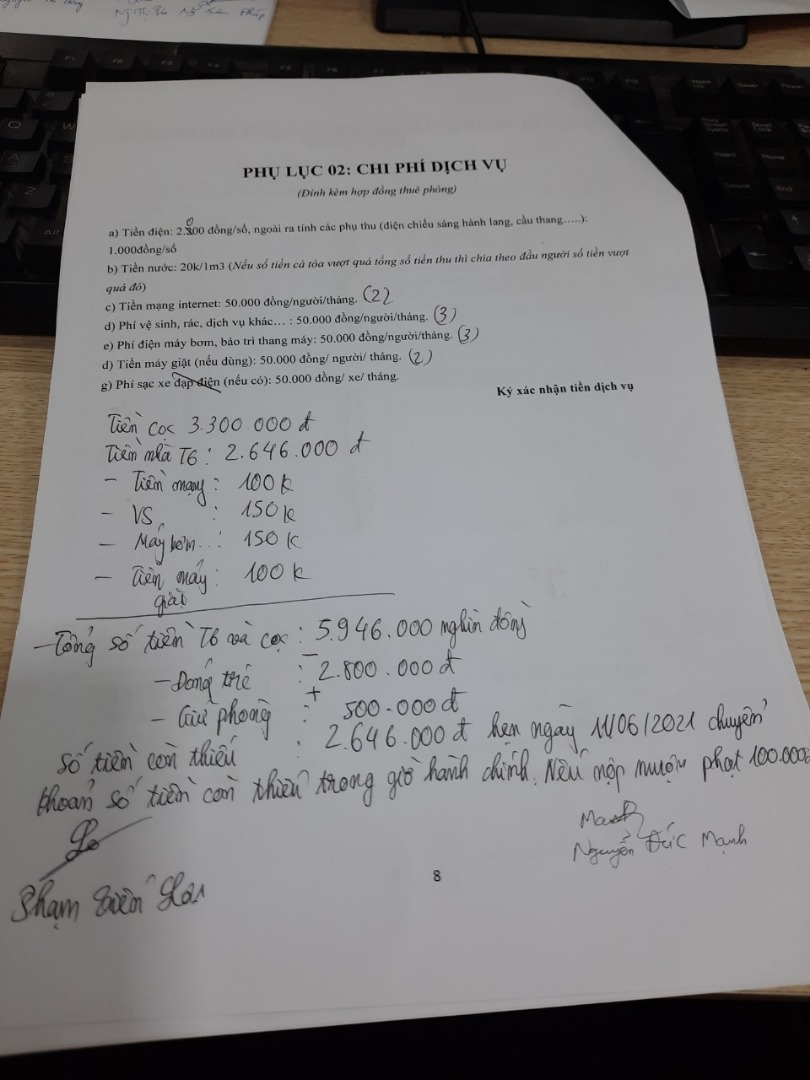 PHỤ LỤC 02: CHI PHÍ DỊCH VỤ
(Đính kèm hợp đồng thuê phòng)
a) Tiền điện: 2.000 đồng/số, ngoài ra tính các phụ thu (điện chiếu sáng hành lang, cầu thang…..):
1.000đồng/số
b) Tiền nước: 20k/1m3 (Nếu số tiền cả tòa vượt quá tổng số tiền thu thì chia theo đầu người số tiền vượt
quá đó)
c) Tiền mạng internet: 50.000 đồng/người/tháng. (2)
d) Phí vệ sinh, rác, dịch vụ khác… : 50.000 đồng/người/tháng. (3)
e) Phí điện máy bơm, bảo trì thang máy: 50.000 đồng/người/tháng. (3)
d) Tiền máy giặt (nếu dùng): 50.000 đồng/ người/ tháng. (2)
g) Phí sạc xe đạp điện (nếu có): 50.000 đồng/ xe/ tháng.
Ký xác nhận tiền dịch vụ
Tiền cọc 3.300.000 đ
Tiền nhà T6: 2.646.000 đ
- Tiền mạng: 100k
- VS : 150k
- Máy bơm..: 150k
- Tiền máy giặt: 100k
- Tổng số tiền T6 và cọc: 5.946.000 nghìn đồng
- Đóng trể : - 2.800.000 đ
- Giữ phòng : + 500.000 đ
Số tiền còn thiếu : 2.646.000 đ hẹn ngày 11/06/2021 chuyển
khoản số tiền còn thiếu trong giờ hành chính. Nếu nộp muộn phạt 100.000
Nguyễn Đức Mạnh
Phạm
8